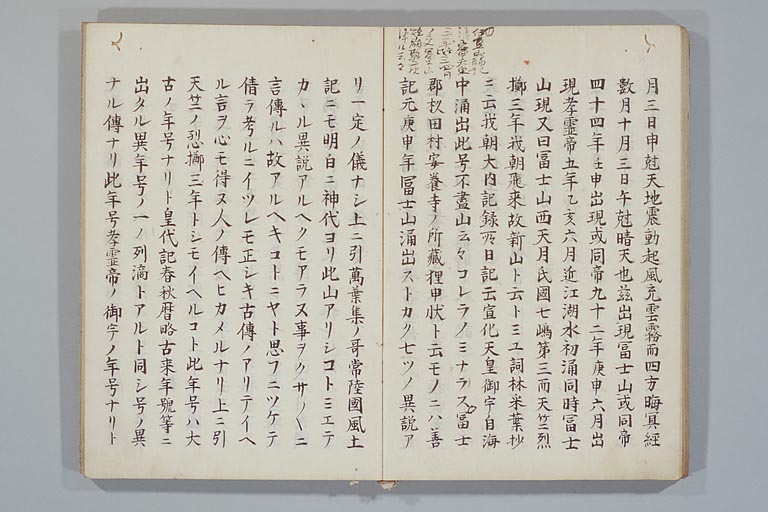 月三日申尅天地震動起風充雲霧而四方晦冥経
数月十月三日午尅晴天也茲出現冨士山或同帝
四十四年壬申出現或同帝九十二年庚申六月出
現孝霊帝五年乙亥六月近江湖水初涌同時冨士
山現又曰冨士山西天月氏國七嶋第三而天竺烈
擲三年我朝飛来故新山ト云トミユ詞林采葉抄
ニ云我朝大内記録所日記云宣化天皇御宇自海
中涌出此号不盡山云々コレラノミナラス冨士
郡杦田村安養寺ノ所蔵狸申状ト云モノニハ善
記元庚申年冨士山涌出ストカク七ツノ異説ア
リ一定ノ儀ナシ上ニ引萬葉集ノ哥常陸國風土
記ニモ明白ニ神代ヨリ此山アリシコトミエテ
カヽル異説アルヘクモアラス事ヲクサ〳〵ニ
言傳ルハ故アルヘキコトニヤト思フニツケテ
倩ラ考ルニイツレモ正シキ古傳ノアリテイヘ
ル言ヲ心モ得ヌ人ノ傳ヘヒカメルナリ上ニ引
天竺ノ烈擲三年トシモイヘルコト此年号ハ大
古ノ年号ナリト皇代記春秋暦略古来年號等ニ
出タル異年号ノ一ノ列滴トアルト同シ号ノ異
ナル傳ナリ此年号孝霊帝ノ御宇ノ年号ナリト